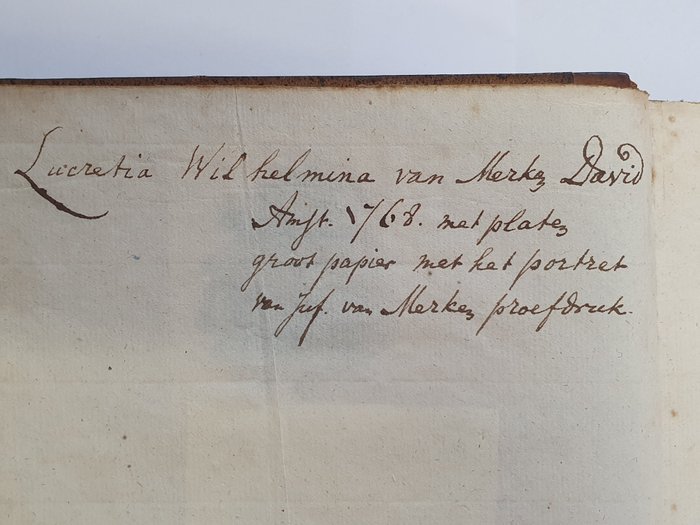 Lucretia Wilhelmina van Merken David
Amst. 1768. met platen
groot papier met het portret
van Juf. van Merken proefdruk.